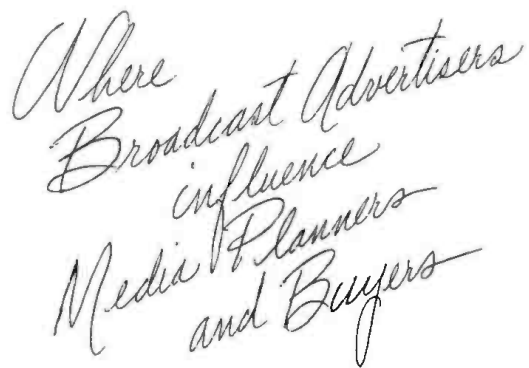 Where
Broadcast Advertisers
influence
Media Planners
and Buyers